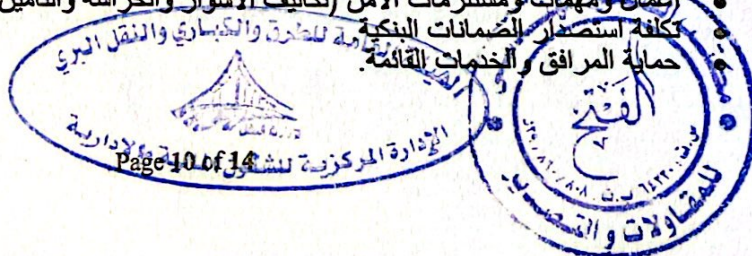 أعمال ومهمات ومستلزمات الأمن (تكاليف الأسوار والحراسة والتأمين
تكلفة استصدار الضمانات البنكية
حماية المرافق والخدمات القائمة.
الهيئة العامة للطرق والكباري والنقل البري
الإدارة المركزية للشئون المالية والإدارية
Page 10 of 14
الفتح
للمقاولات والتصدير